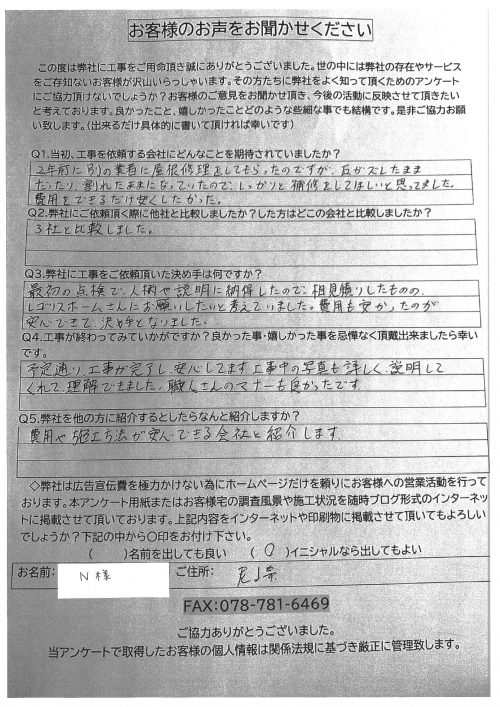 お客様のお声をお聞かせください
この度は弊社に工事をご用命頂き誠にありがとうございました。世の中には弊社の存在やサービス
をご存知ないお客様が沢山いらっしゃいます。その方たちに弊社をよく知って頂くためのアンケート
にご協力頂けないでしょうか?お客様のご意見をお聞かせ頂き、今後の活動に反映させて頂きたい
と考えております。良かったこと、嬉しかったことどのような些細な事でも結構です。是非ご協力お願
い致します。(出来るだけ具体的に書いて頂ければ幸いです)
Q1.当初、工事を依頼する会社にどんなことを期待されていましたか?
2年前に別の業者に屋根修理をしてもらったのですが、瓦がズレたまま
だったり、割れたままになっていたので、しっかりと補修をしてほしいと思ってました。
費用をできるだけ安くしたかった。
Q2.弊社にご依頼頂く際に他社と比較しましたか?した方はどこの会社と比較しましたか?
3社と比較しました。
Q3.弊社に工事をご依頼頂いた決め手は何ですか?
最初の点検で、人柄や説明に納得したので、相見積りしたものの、
レゴリスホームさんにお願いしたいと考えていました。費用も安かったのが
安心できて、決め手となりました。
Q4.工事が終わってみていかがですか?良かった事・嬉しかった事を忌憚なく頂戴出来ましたら幸い
です。
予定通り、工事が完了し、安心してます。工事中の写真も詳しく、説明して
くれて、理解できました。職人さんのマナーも良かったです
Q5.弊社を他の方に紹介するとしたらなんと紹介しますか?
費用や施工方法が安心できる会社と紹介します。
◇弊社は広告宣伝費を極力かけない為にホームページだけを頼りにお客様への営業活動を行って
おります。本アンケート用紙またはお客様宅の調査風景や施工状況を随時ブログ形式のインターネッ
トに掲載させて頂いております。上記内容をインターネットや印刷物に掲載させて頂いてもよろしい
でしょうか?下記の中から〇印をお付け下さい。
( )名前を出しても良い (〇)イニシャルなら出してもよい
お名前: N様 ご住所: 尼崎
FAX:078-781-6469
ご協力ありがとうございました。
当アンケートで取得したお客様の個人情報は関係法規に基づき厳正に管理致します。